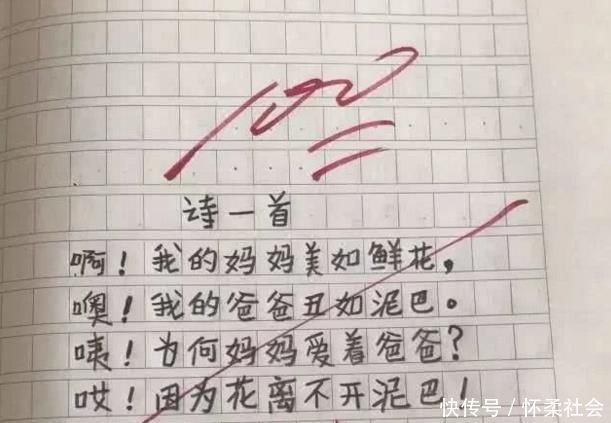 100
诗一首
啊！我的妈妈美如鲜花，
噢！我的爸爸丑如泥巴。
咦！为何妈妈爱着爸爸？
哎！因为花离不开泥巴！
快传号／怀柔社会